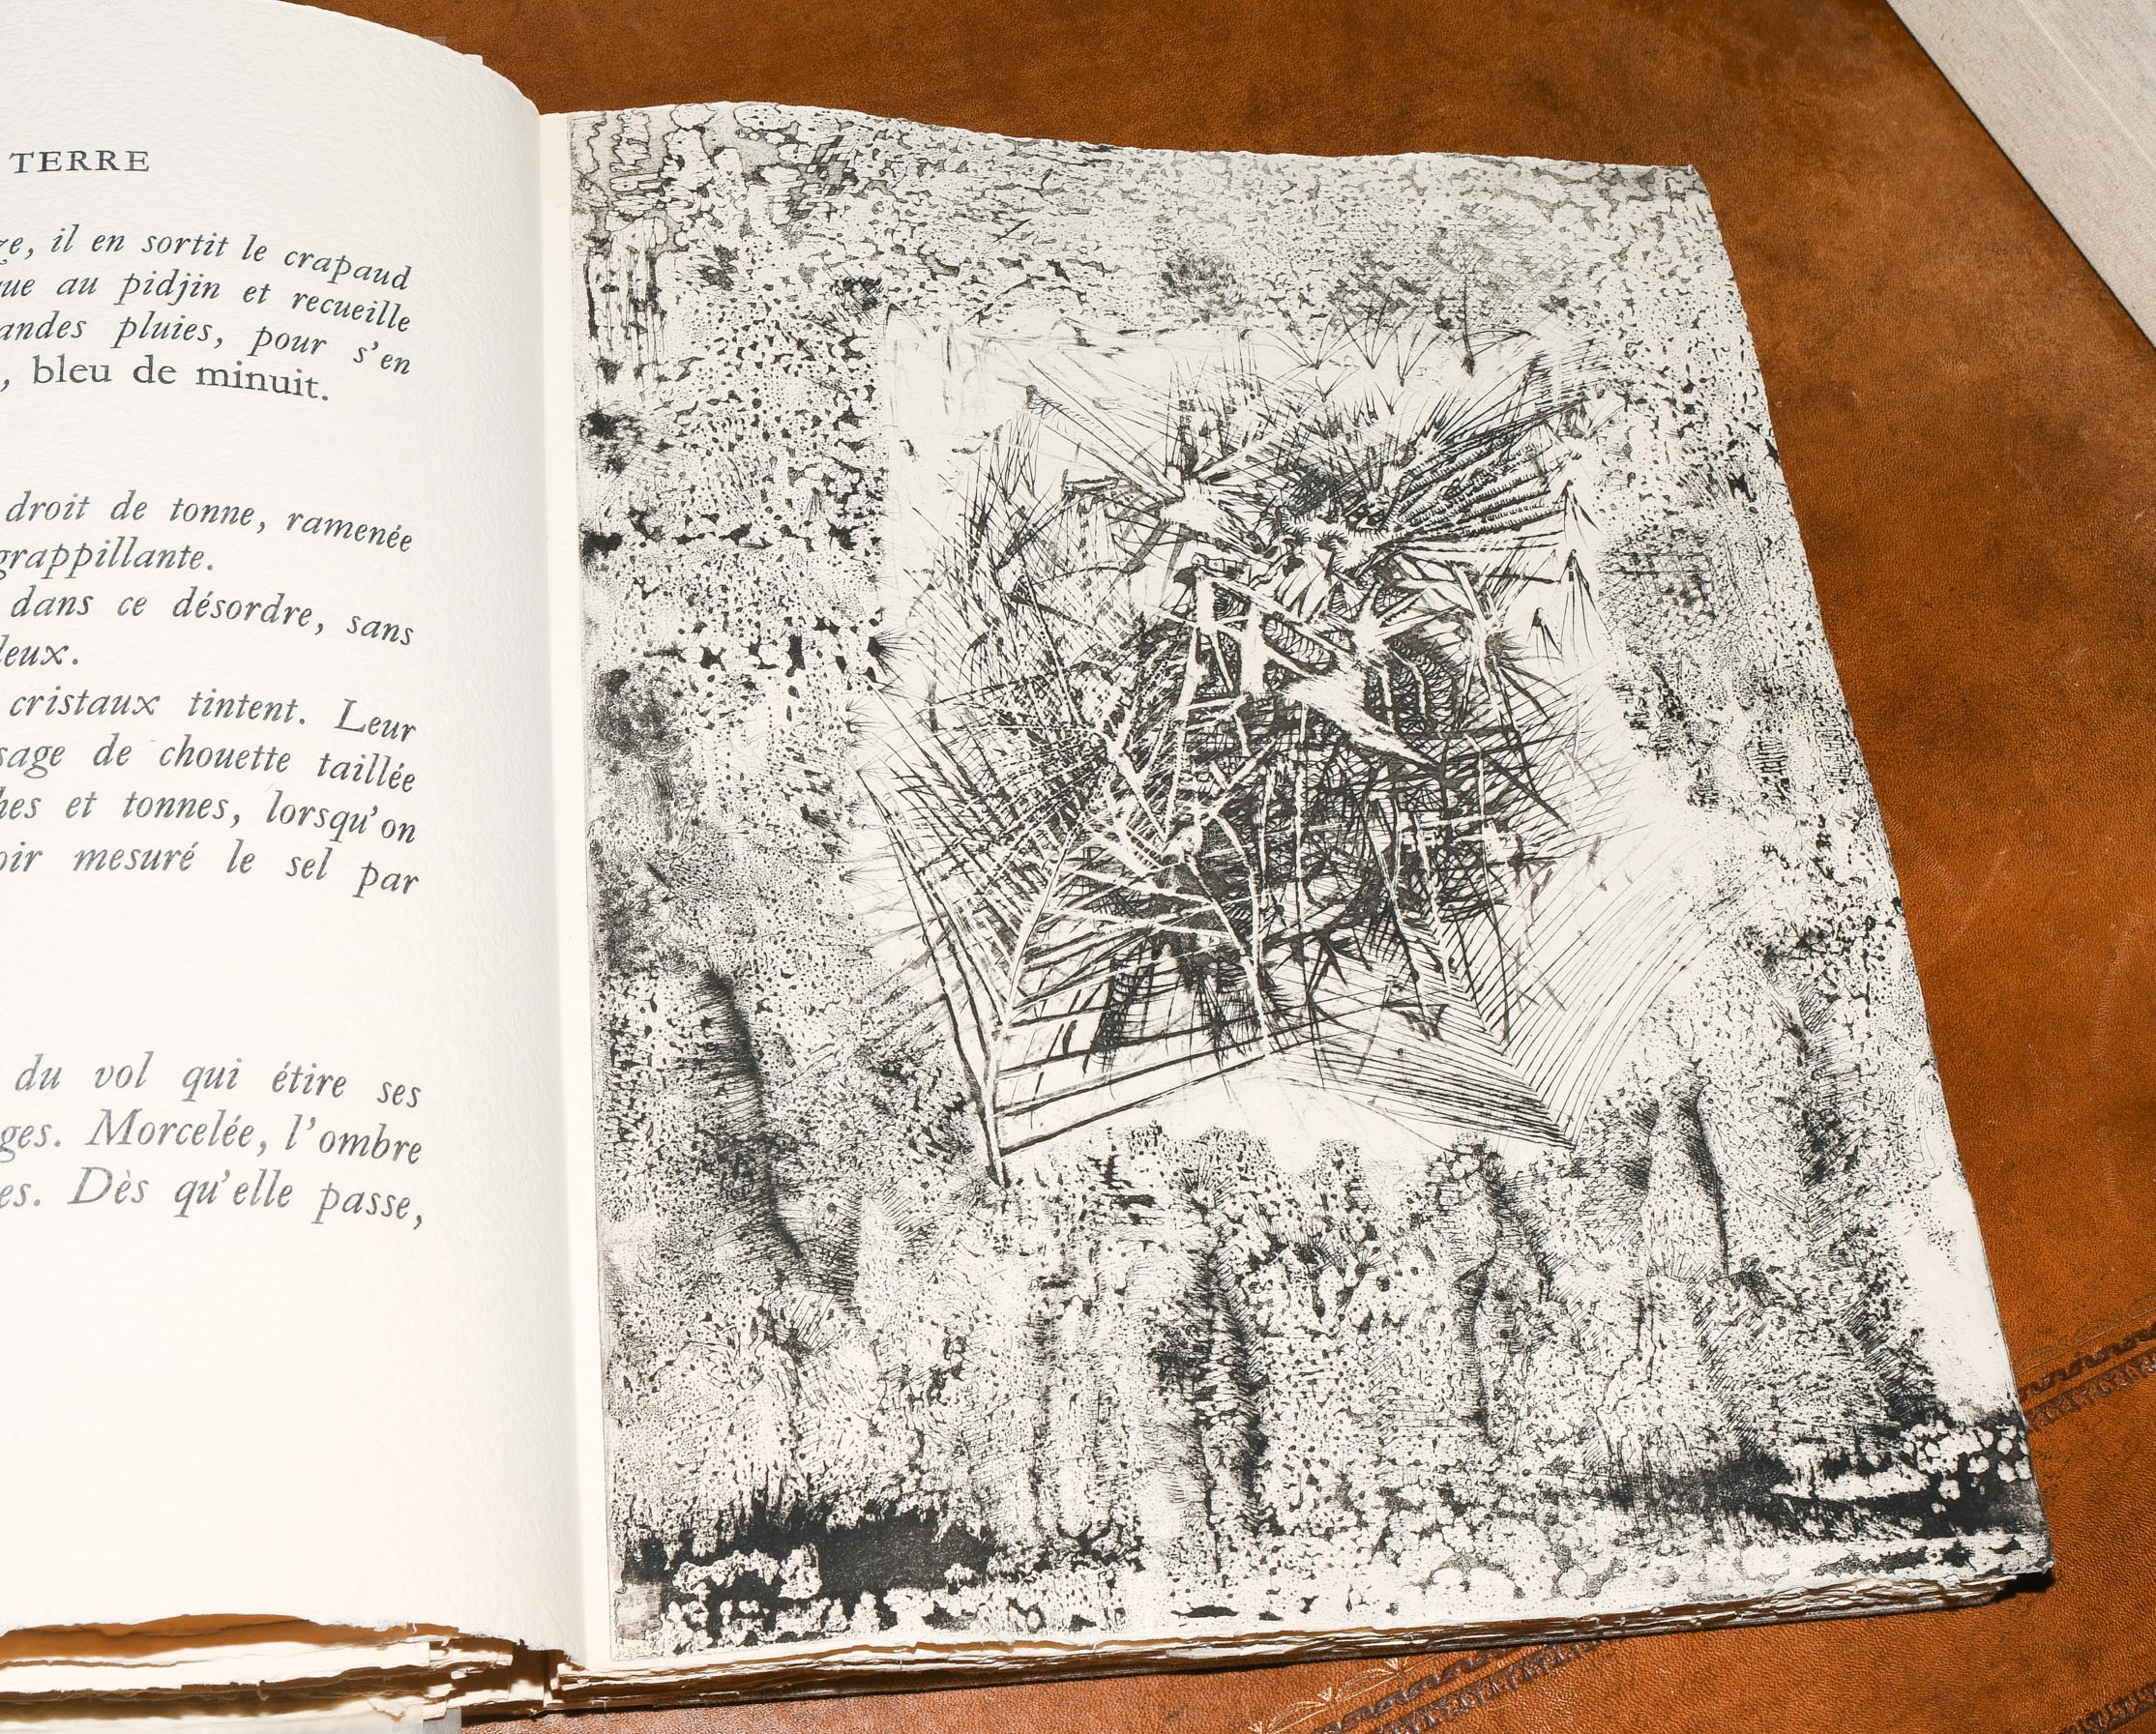 TERRE
, il en sortit le crapaud
au pidjin et recueille
pluies, pour s'en
, bleu de minuit.
droit de tonne, ramenée
grappillante.
dans ce désordre, sans
cristaux tintent. Leur
de chouette taillée
et tonnes, lorsqu'on
mesuré le sel par
du vol qui étire ses
Morcelée, l'ombre
Dès qu'elle passe,